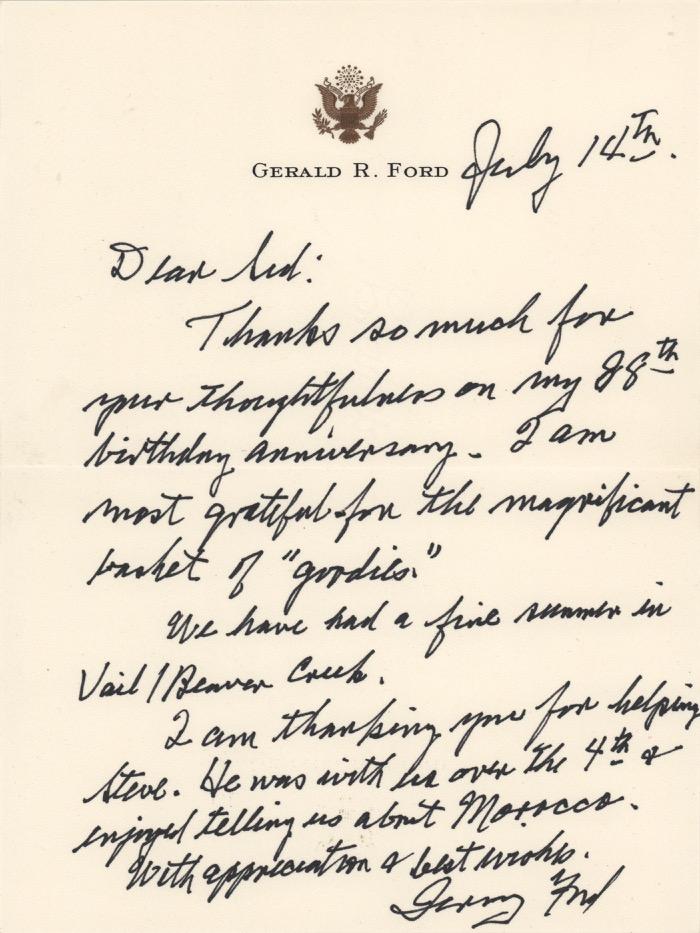 GERALD R. FORD
July 14th.
Dear Sid:
Thanks so much for
your thoughtfulness on my 88th
birthday anniversary. I am
most grateful for the magnificant
basket of "goodies."
We have had a fine summer in
Vail/Beaver Creek.
I am thanking you for helping
Steve. He was with us over the 4th &
enjoyed telling us about Morocco.
With appreciation & best wishes.
Jerry Ford